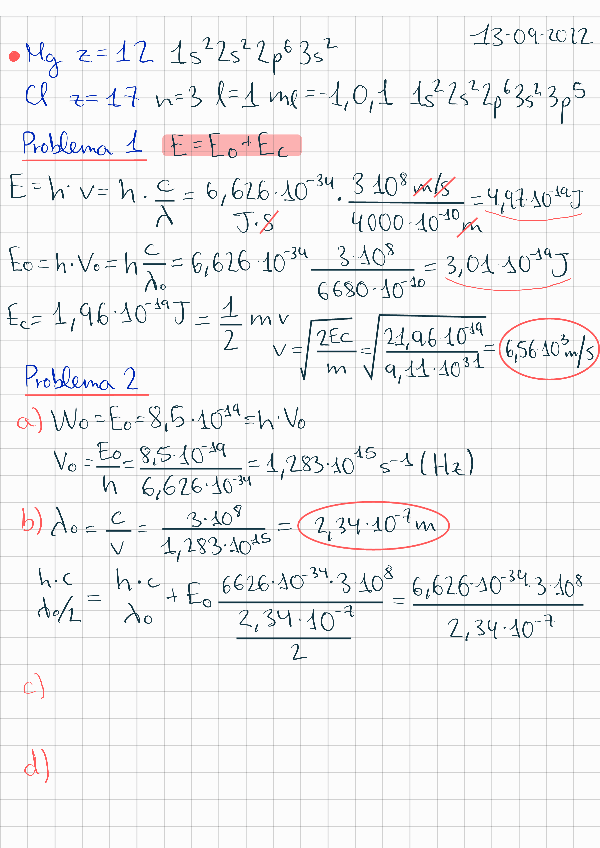 13-09-2022
• Mg z=12 1s² 2s² 2p⁶ 3s²
Cl z=17 n=3 l=1 ml=-1,0,1 1s² 2s² 2p⁶ 3s² 3p⁵
Problema 1 E=E₀+Ec
E=h·ν=h·c/λ=6,626·10⁻³⁴ J·s · 3 10⁸ m/s / 4000·10⁻¹⁰ m = 4,97·10⁻¹⁹ J
E₀=h·ν₀=h c/λ₀=6,626·10⁻³⁴ 3·10⁸ / 6680·10⁻¹⁰ = 3,01·10⁻¹⁹ J
Ec=1,96·10⁻¹⁹ J = 1/2 m v
v=√(2Ec/m)=√(21,96·10⁻¹⁹ / 9,11·10³1)= 6,56·10³ m/s
Problema 2
a) W₀=E₀=8,5·10⁻¹⁹=h·ν₀
ν₀=E₀/h=8,5·10⁻¹⁹ / 6,626·10⁻³⁴ = 1,283·10¹⁵ s⁻¹ (Hz)
b) λ₀=c/ν=3·10⁸ / 1,283·10¹⁵ = 2,34·10⁻⁷ m
h·c / λ₀/2 = h·c / λ₀ + E₀ 6626·10⁻³⁴·3 10⁸ / 2,34·10⁻⁷ / 2 = 6,626·10⁻³⁴·3·10⁸ / 2,34·10⁻⁷
c)
d)